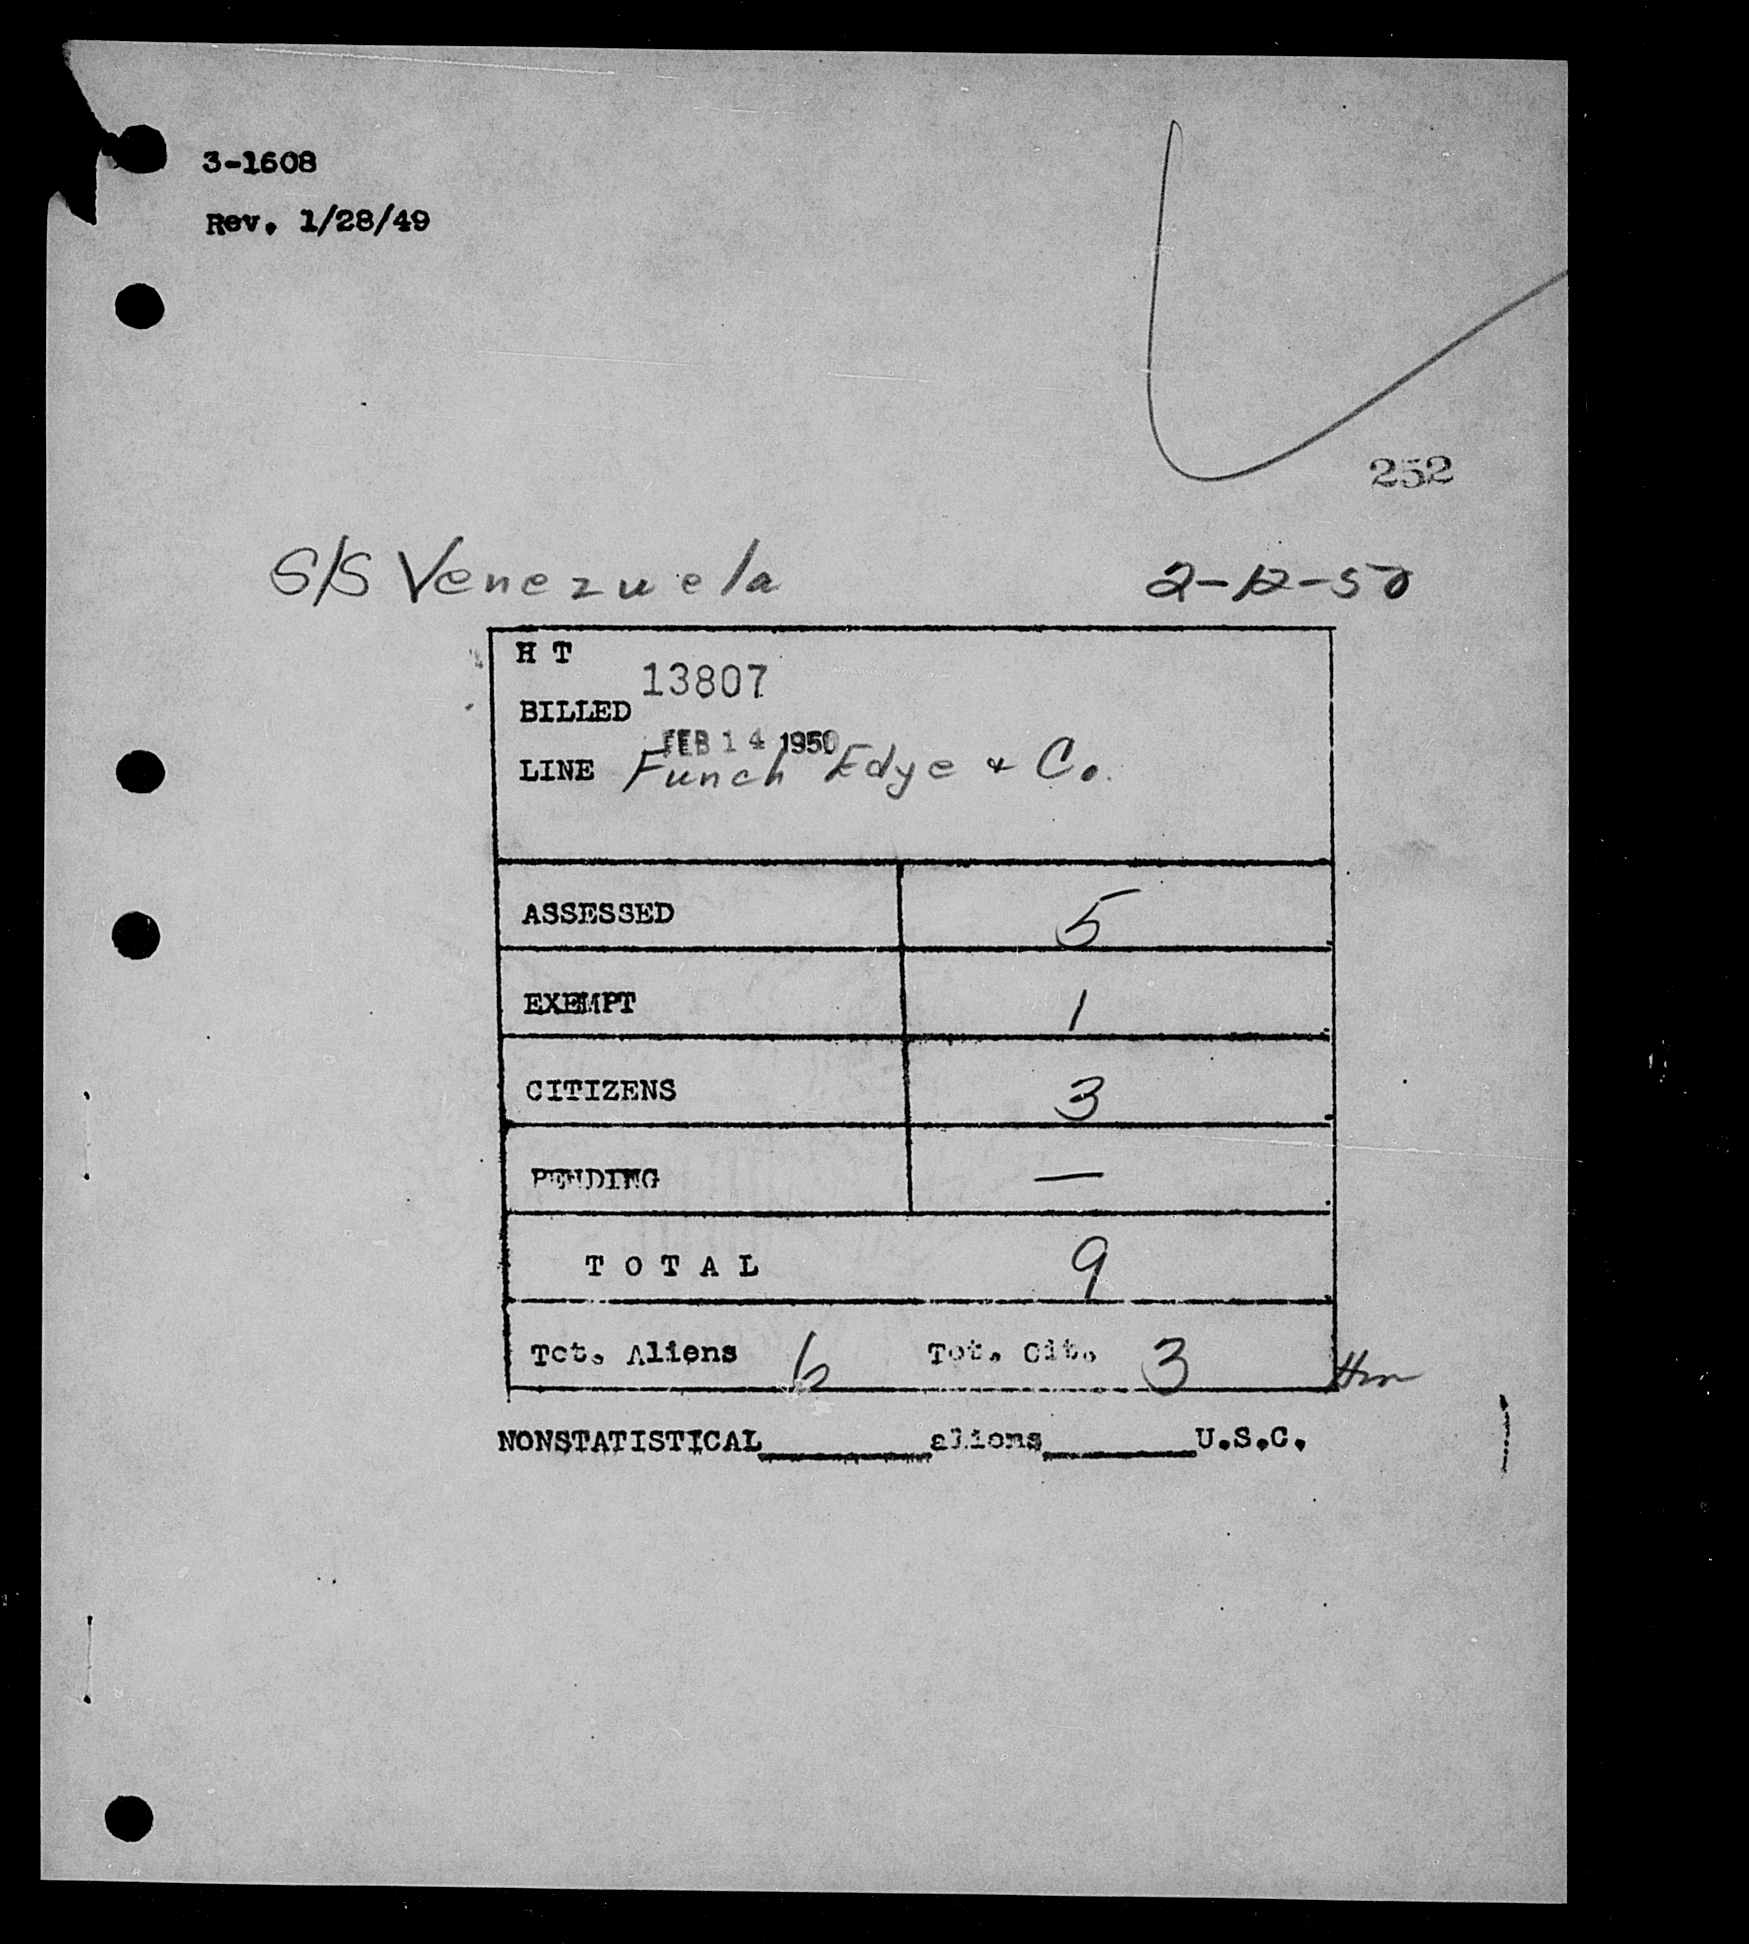 3-1608
Rev. 1/28/49
252
S/S Venezuela 2-12-50
H T 13807
BILLED
FEB 14 1950
LINE Funch Edye & Co.
ASSESSED 5
EXEMPT 1
CITIZENS 3
PENDING —
T O T A L 9
Tot. Aliens 6 Tot. Cit. 3
NONSTATISTICAL________aliens_______U.S.C.